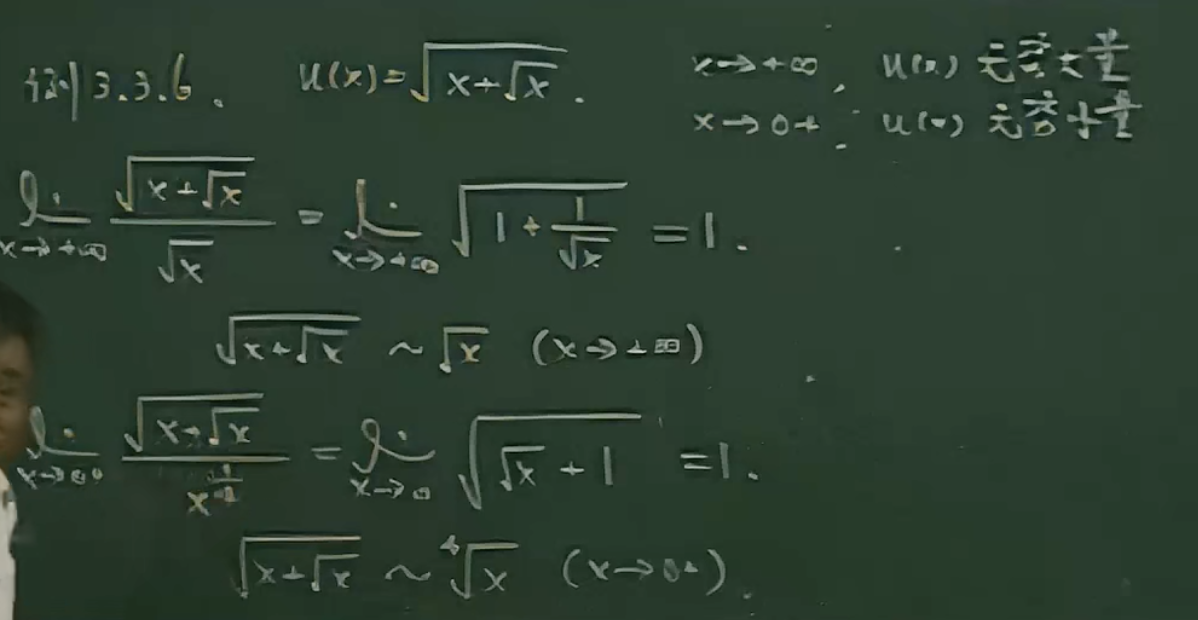 例3.3.6. u(x)=√(x+√x). x→+∞, u(x) 无穷大量
x→0+, u(x) 无穷小量
lim_{x→+∞} √(x+√x)/√x = lim_{x→+∞} √(1+1/√x) = 1.
√(x+√x) ~ √x (x→+∞)
lim_{x→0+} √(x+√x)/x^{1/4} = lim_{x→0} √(√x+1) = 1.
√(x+√x) ~ ⁴√x (x→0+).